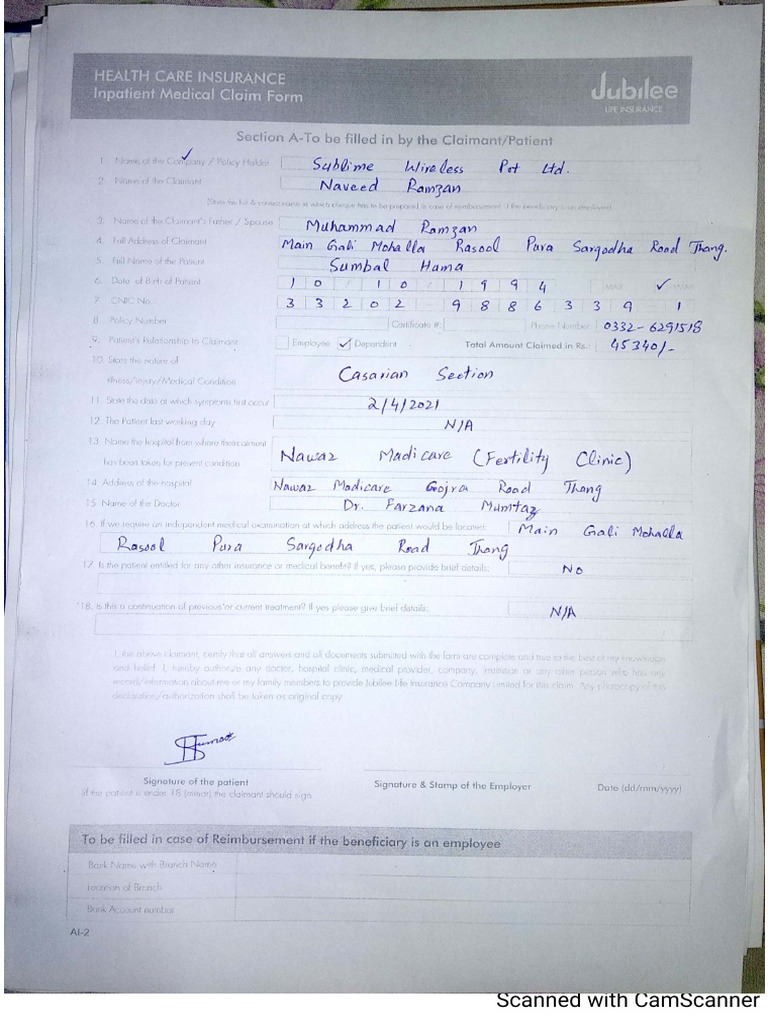 HEALTH CARE INSURANCE
Inpatient Medical Claim Form
Jubilee
LIFE INSURANCE
Section A-To be filled in by the Claimant/Patient
1. Name of the Company / Policy Holder Sublime Wireless Pvt Ltd.
2. Name of the Claimant Naveed Ramzan
(State the full & correct name in which cheque has to be prepared in case of reimbursement if the beneficiary is an employee)
3. Name of the Claimant's Father / Spouse Muhammad Ramzan
4. Full Address of Claimant Main Gali Mohalla Rasool Pura Sargodha Road Jhang.
5. Full Name of the Patient Sumbal Huma
6. Date of Birth of Patient 10 10 1994 ✓
7. CNIC No. 33202 9886339 1
8. Policy Number Certificate #: Phone Number 0332-6291518
9. Patient's Relationship to Claimant Employee ✓ Dependent Total Amount Claimed in Rs.: 45340/-
10. State the nature of
illness/injury/Medical Condition Casarian Section
11. State the date at which symptoms first occur 2/4/2021
12. The Patient last working day N/A
13. Name the hospital from where the treatment
has been taken for present condition Nawaz Madicare (Fertility Clinic)
14. Address of the hospital Nawaz Modicare Gojra Road Jhang
15. Name of the Doctor Dr. Farzana Mumtaz
16. If we require an independent medical examination at which address the patient would be located: Main Gali Mohalla
Rasool Pura Sargodha Road Jhang
17. Is the patient entitled for any other insurance or medical benefit? If yes, please provide brief details: No
18. Is this a continuation of previous or current treatment? If yes please give brief details: N/A
I, the above claimant, certify that all answers and all documents submitted with the form are complete and true to the best of my knowledge
and belief. I, hereby authorize any doctor, hospital clinic, medical provider, company, institution or any other person who has any
record/information about me or my family members to provide Jubilee Life Insurance Company Limited for this claim. Any photocopy of this
declaration/authorization shall be taken as original copy.
Signature of the patient
(If the patient is under 18 (minor) the claimant should sign
Signature & Stamp of the Employer
Date (dd/mm/yyyy)
To be filled in case of Reimbursement if the beneficiary is an employee
Bank Name with Branch Name
Location of Branch
Bank Account number
AI-2
Scanned with CamScanner